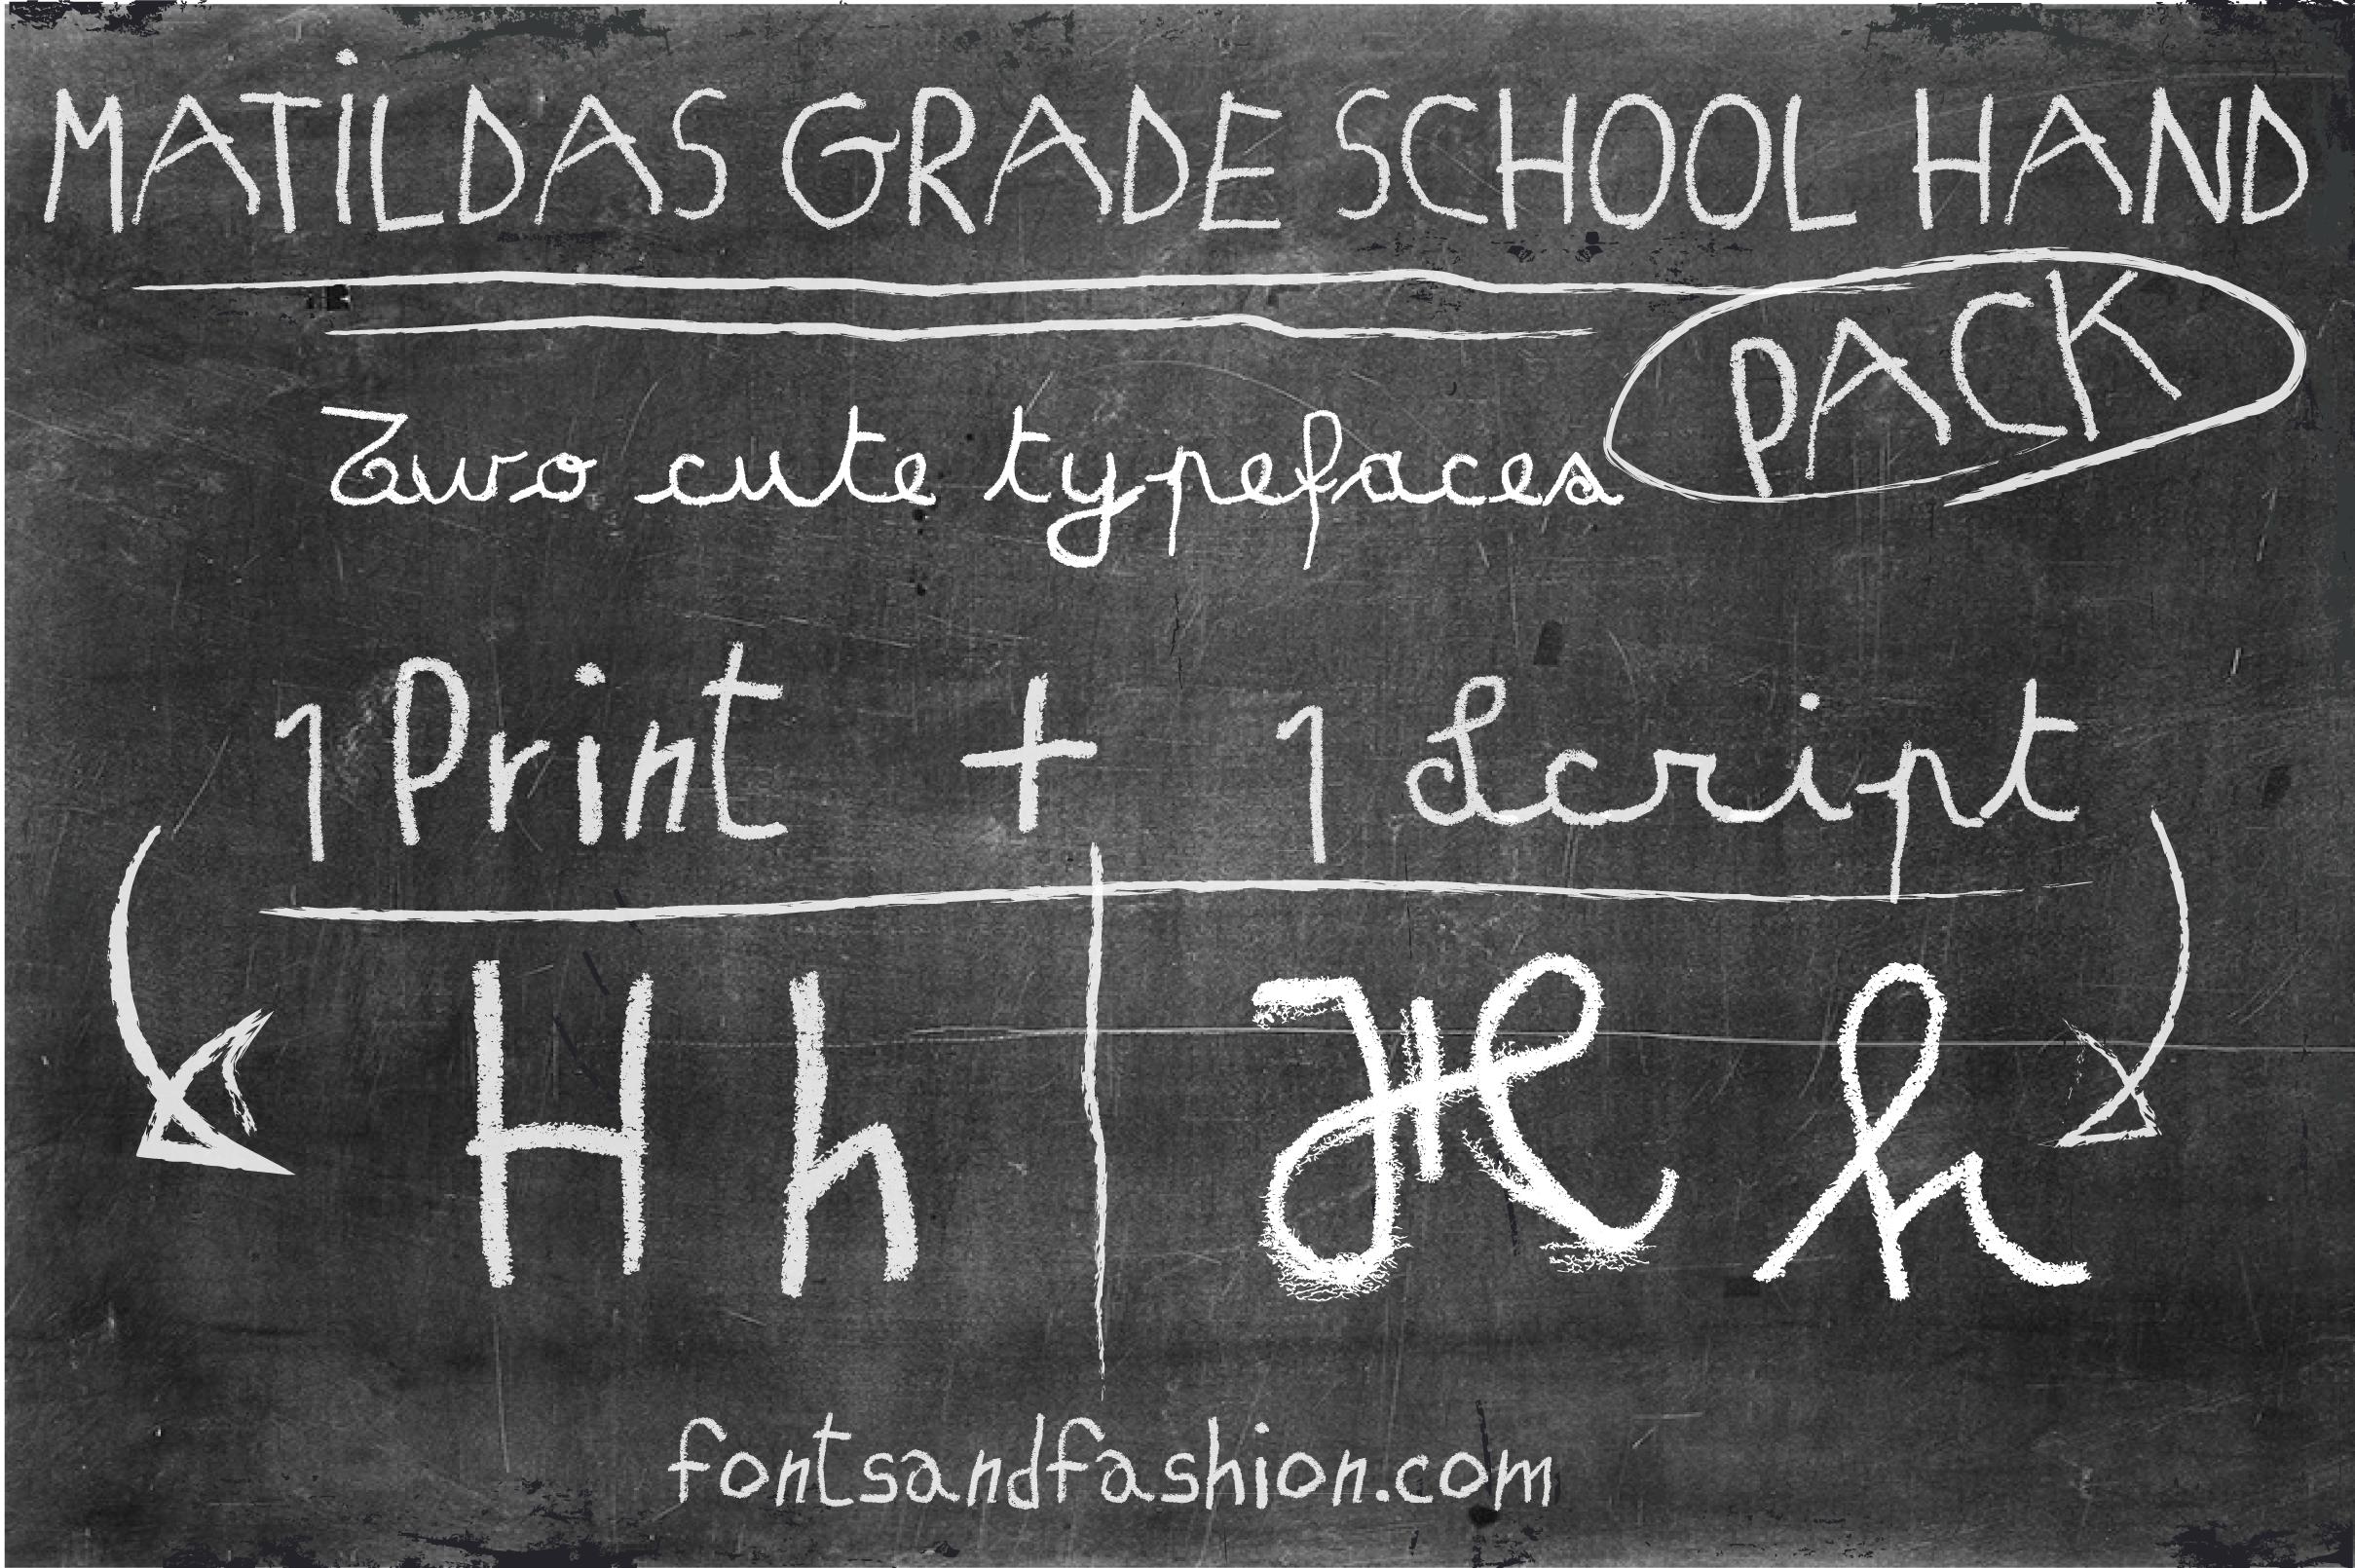 MATiLDAS GRADE SCHOOL HAND
PACK
Two cute typefaces
1 Print + 1 Script
H h H h
fontsandfashion.com